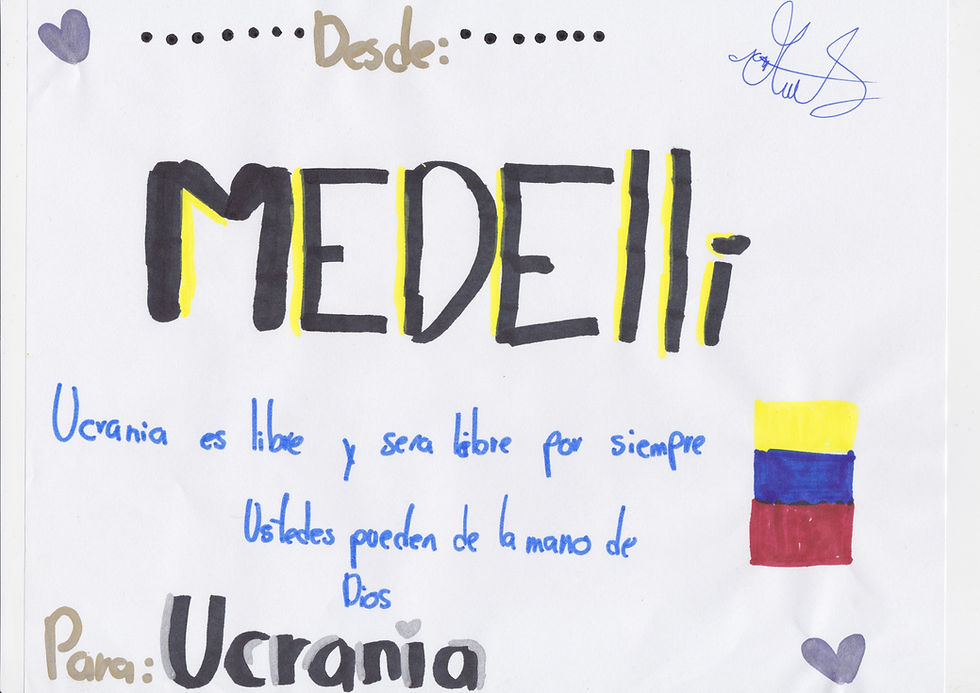 Desde:
MEDElli
Ucrania es libre y sera libre por siempre
Ustedes pueden de la mano de
Dios
Para: Ucrania